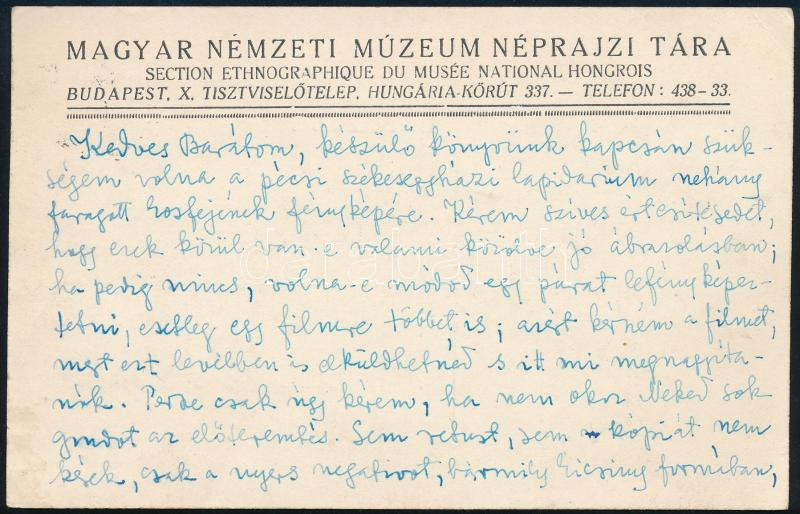 MAGYAR NEMZETI MÚZEUM NÉPRAJZI TÁRA
SECTION ETHNOGRAPHIQUE DU MUSÉE NATIONAL HONGROIS
BUDAPEST, X, TISZTVISELŐTELEP, HUNGÁRIA-KÖRÚT 337. — TELEFON: 438–33.
Kedves Barátom, készülő könyvünk kapcsán szük-
ségem volna a pécsi székesegyházi lapidarium nehány
faragott kosfejének fényképére. Kérem szives értesitésedet,
hogy ezek közül van-e valami közölve jó ábrázolásban;
ha pedig nincs, volna-e módod egy párat lefényképez-
tetni, esetleg egy filmre többet is; azért kérném a filmet,
mert ezt levélben is elküldhetnéd s itt mi megnagyita-
nók. Persze csak úgy kérem, ha nem okoz Neked sok
gondot az előteremtés. Sem retust, sem kópiát nem
kérek, csak a nyers negativot, bármily kicsiny formában,